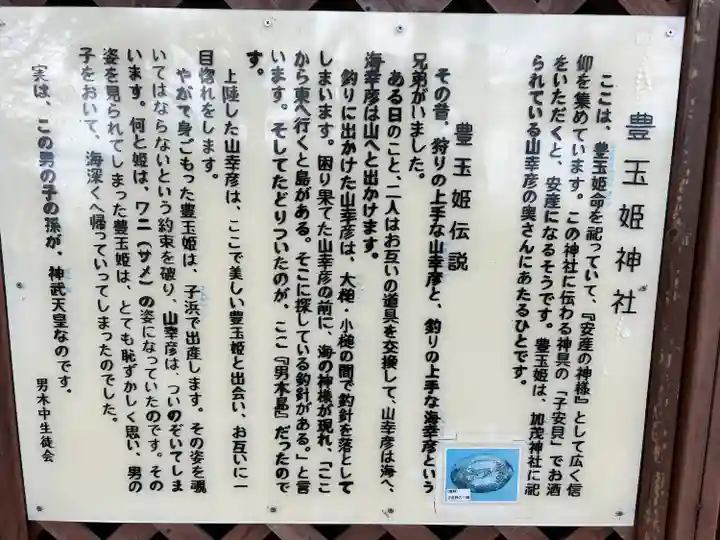 豊玉姫神社
ここは、豊玉姫命を祀っていて、『安産の神様』として広く信
仰を集めています。この神社に伝わる神具の「子安貝」でお酒
をいただくと、安産になるそうです。豊玉姫は、加茂神社に祀
られている山幸彦の奥さんにあたるひとです。
豊玉姫伝説
その昔、狩りの上手な山幸彦と、釣りの上手な海幸彦という
兄弟がいました。
ある日のこと、二人はお互いの道具を交換して、山幸彦は海へ、
海幸彦は山へと出かけます。
釣りに出かけた山幸彦は、大槌・小槌の間で釣針を落として
しまいます。困り果てた山幸彦の前に、海の神様が現れ、「ここ
から東へ行くと島がある。そこに探している釣針がある。」と言
います。そしてたどりついたのが、ここ『男木島』だったので
す。
上陸した山幸彦は、ここで美しい豊玉姫と出会い、お互いに一
目惚れをします。
やがて身ごもった豊玉姫は、子浜で出産します。その姿を覗
いてはならないという約束を破り、山幸彦は、ついのぞいてしま
います。何と姫は、ワニ(サメ)の姿になっていたのです。その
姿を見られてしまった豊玉姫は、とても恥ずかしく思い、男の
子をおいて、海深くへ帰っていってしまったのでした。
実は、この男の子の孫が、神武天皇なのです。
男木中生徒会